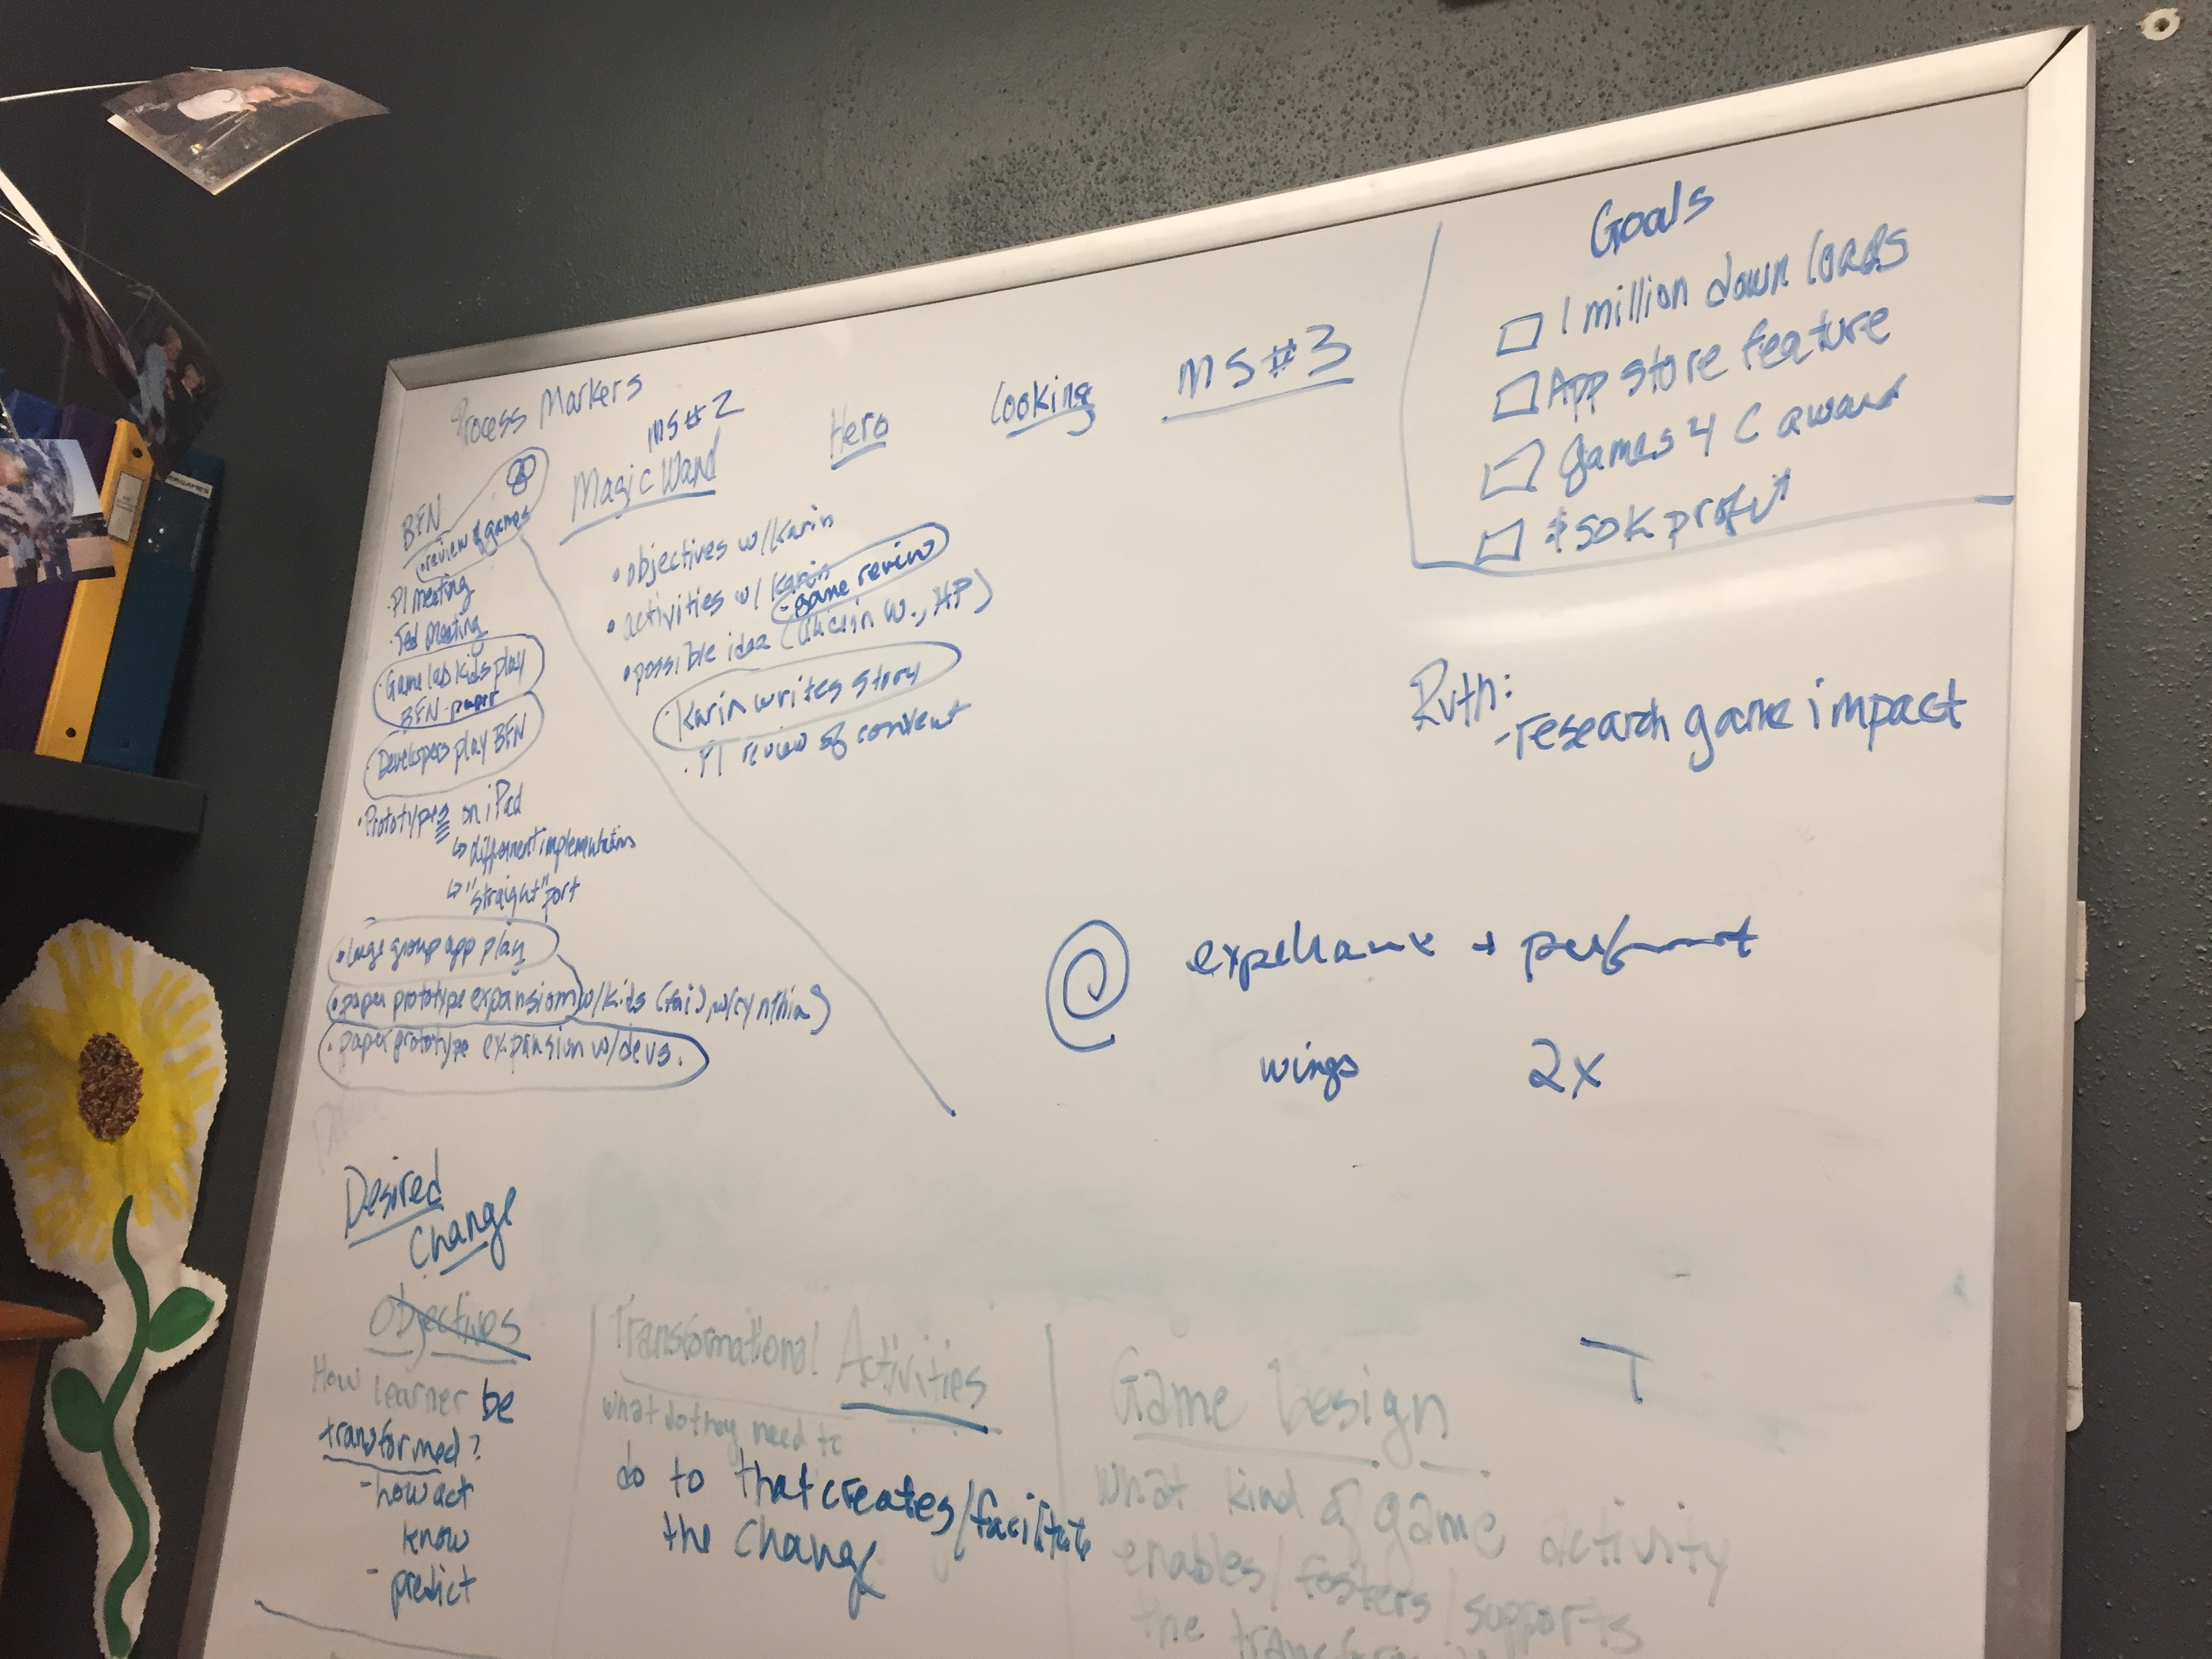 Process Markers
BFN
• review of games
• PI meeting
• Ted Meeting
• Game lab kids play
BFN - paper
• Developers play BFN
• Prototypes on iPad
↳ different implementations
↳ "straight" port
• large group app play
• paper prototype expansion w/kids (fai), w/cynthia)
• paper prototype expansion w/devs.
MS#2
Magic Wand
• objectives w/Karin
• activities w/ Karin
- game review
• possible idea ( w., HP)
• Karin writes story
• PI review of content
Hero
Looking
MS#3
Goals
1 million down loads
App store feature
Games 4 C award
$50K profit
Ruth:
- research game impact
+
wings 2x
Desired
Change
Objectives
How learner be
transformed?
- how act
know
- predict
Transformational Activities
what do they need to
do to that creates/facilitate
the change
Game Design
What kind of game activity
enables/fosters/supports
the